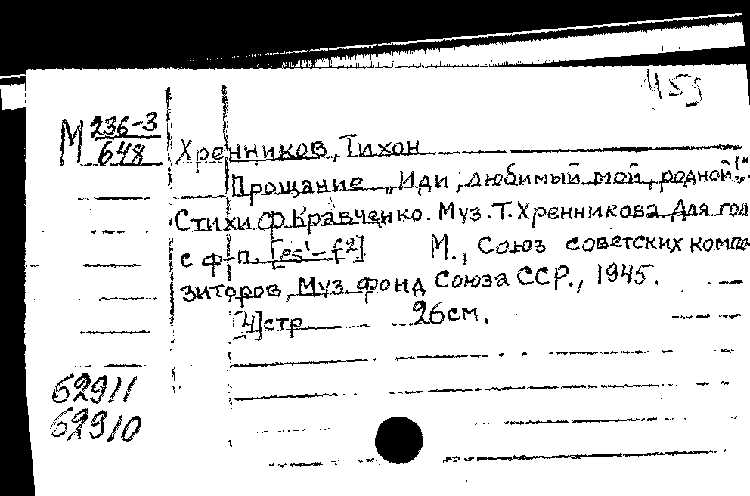 М 236-3
648
Хренников, Тихон
Прощание „Иди, любимый мой, родной!"
Стихи Ф. Кравченко. Муз. Т. Хренникова. Для гол
с ф-п. [es¹-f²] М., Союз советских компо
зиторов, Муз. фонд Союза ССР., 1945.
[4] стр 26 см.
62911
62910